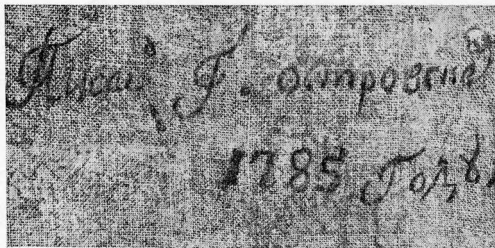 Писал Г. островский
1785 Году